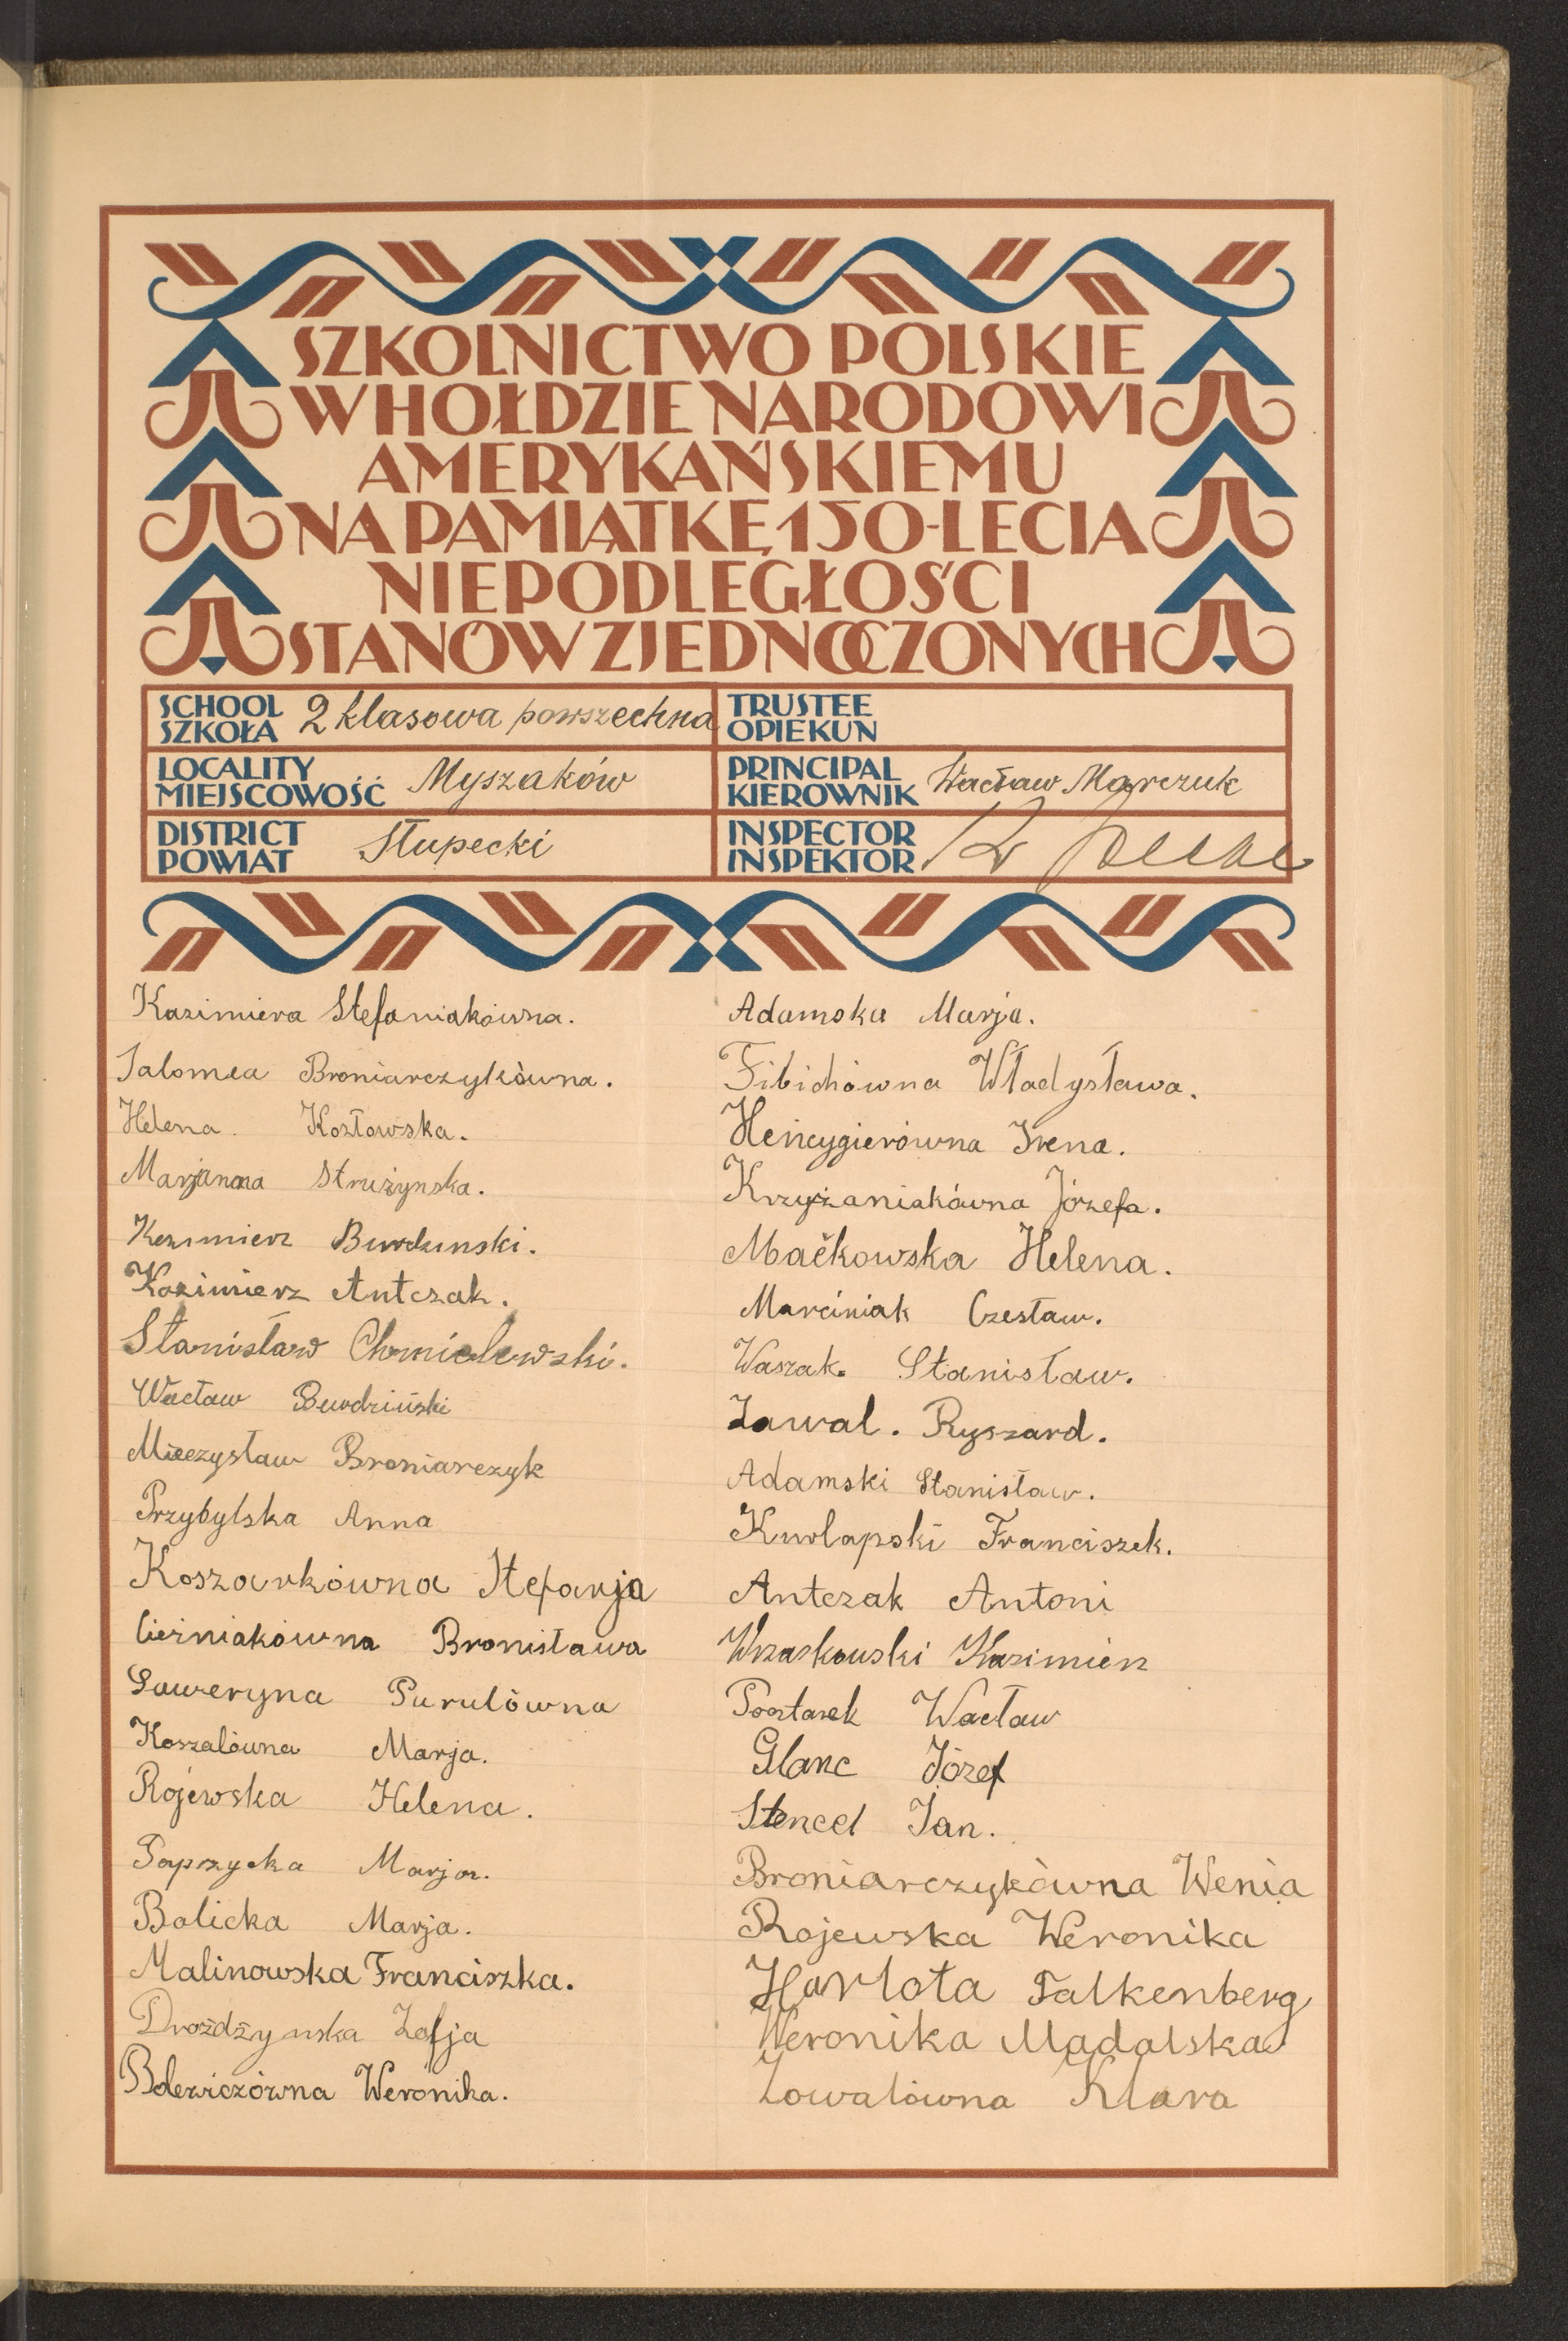 SZKOLNICTWO POLSKIE
W HOŁDZIE NARODOWI
AMERYKAŃSKIEMU
NA PAMIĄTKĘ 150-LECIA
NIEPODLEGŁOŚCI
STANÓW ZJEDNOCZONYCH
SCHOOL
SZKOŁA 2 klasowa powszechna
TRUSTEE
OPIEKUN
LOCALITY
MIEJSCOWOŚĆ Myszaków
PRINCIPAL
KIEROWNIK Wacław Marczuk
DISTRICT
POWIAT Słupecki
INSPECTOR
INSPEKTOR
Kazimiera Stefaniakówna.
Salomea Broniarczykówna.
Helena Kozłowska.
Marjanna Strużynska.
Kezimierz Burdunski.
Kazimierz Antczak.
Stanisław Chmielewski.
Wacław
Mieczysław Broniarczyk
Przybylska Anna
Koszarkówna Stefanja
Cierniakówna Bronisława
Saweryna Purulówna
Koszalówna Marja.
Rojewska Helena.
Paprzycka Marja.
Balicka Marja.
Malinowska Franciszka.
Drożdżynska Zofja
Bolewiczówna Weronika.
Adamska Marja.
Fibichówna Władysława.
Heńcygierówna Irena.
Krzyżaniakówna Józefa.
Maćkowska Helena.
Marciniak Czesław.
Waszak. Stanisław.
Zawal. Ryszard.
Adamski Stanisław.
Kurlapski Franciszek.
Antczak Antoni
Wrzaskowski Kazimierz
Wacław
Glanc Józef
Stencel Jan.
Broniarczykówna Wenia
Rojewska Weronika
Harlota Falkenberg
Weronika Madalska
Zowalówna Klara